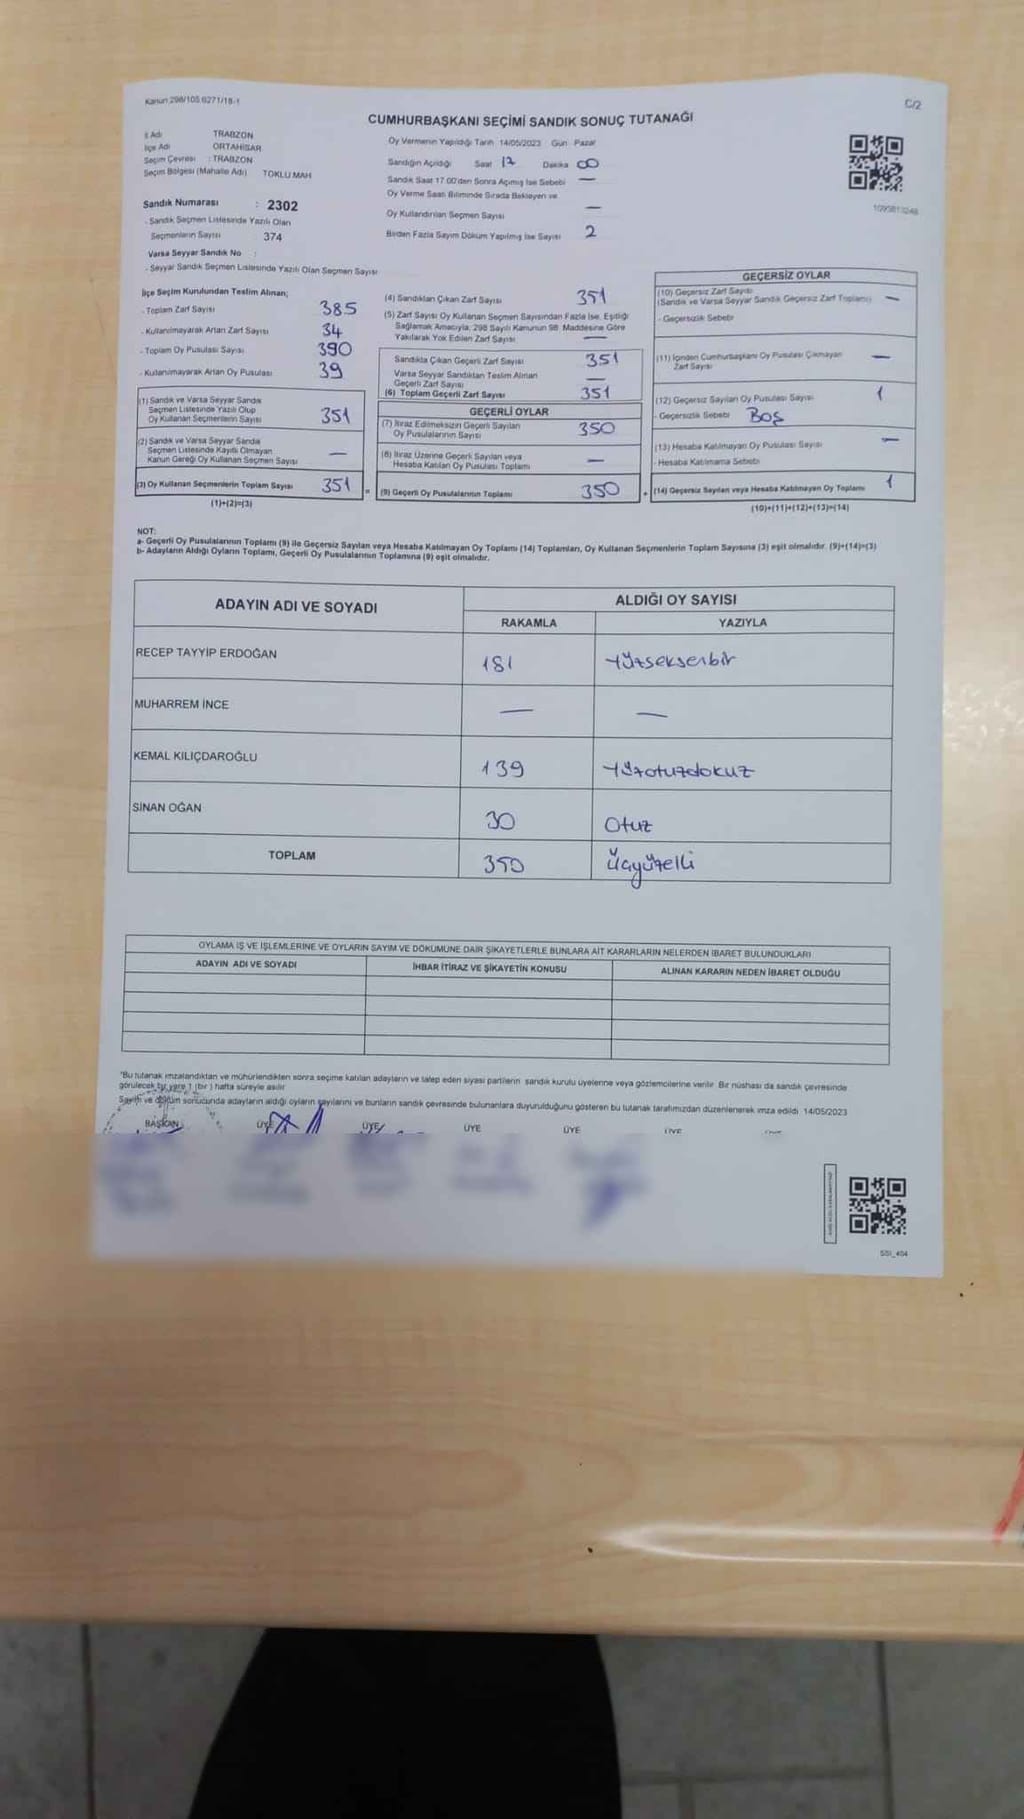 Kanun 298/105 6271/18-1
C/2
CUMHURBAŞKANI SEÇİMİ SANDIK SONUÇ TUTANAĞI
İl Adı TRABZON
İlçe Adı ORTAHİSAR
Seçim Çevresi : TRABZON
Seçim Bölgesi (Mahalle Adı) TOKLU MAH
Sandık Numarası : 2302
- Sandık Seçmen Listesinde Yazılı Olan
Seçmenlerin Sayısı 374
Varsa Seyyar Sandık No :
- Seyyar Sandık Seçmen Listesinde Yazılı Olan Seçmen Sayısı
Oy Vermenin Yapıldığı Tarih 14/05/2023 Gün Pazar
Sandığın Açıldığı Saat 17 Dakika 00
Sandık Saat 17.00'den Sonra Açmış İse Sebebi —
Oy Verme Saati Bitiminde Sırada Bekleyen ve
Oy Kullandırılan Seçmen Sayısı —
Birden Fazla Sayım Döküm Yapılmış İse Sayısı 2
İlçe Seçim Kurulundan Teslim Alınan;
- Toplam Zarf Sayısı 385
- Kullanılmayarak Artan Zarf Sayısı 34
- Toplam Oy Pusulası Sayısı 390
- Kullanılmayarak Artan Oy Pusulası 39
(1) Sandık ve Varsa Seyyar Sandık
Seçmen Listesinde Yazılı Olup
Oy Kullanan Seçmenlerin Sayısı 351
(2) Sandık ve Varsa Seyyar Sandık
Seçmen Listesinde Kayıtlı Olmayan
Kanun Gereği Oy Kullanan Seçmen Sayısı —
(3) Oy Kullanan Seçmenlerin Toplam Sayısı 351
(1)+(2)=(3)
(4) Sandıktan Çıkan Zarf Sayısı 351
(5) Zarf Sayısı Oy Kullanan Seçmen Sayısından Fazla İse, Eşitliği
Sağlamak Amacıyla, 298 Sayılı Kanunun 98. Maddesine Göre
Yakılarak Yok Edilen Zarf Sayısı —
Sandıkta Çıkan Geçerli Zarf Sayısı 351
Varsa Seyyar Sandıktan Teslim Alınan
Geçerli Zarf Sayısı —
(6) Toplam Geçerli Zarf Sayısı 351
GEÇERLİ OYLAR
(7) İtiraz Edilmeksizin Geçerli Sayılan
Oy Pusulalarının Sayısı 350
(8) İtiraz Üzerine Geçerli Sayılan veya
Hesaba Katılan Oy Pusulası Toplamı —
= (9) Geçerli Oy Pusulalarının Toplamı 350
GEÇERSİZ OYLAR
(10) Geçersiz Zarf Sayısı
(Sandık ve Varsa Seyyar Sandık Geçersiz Zarf Toplamı) —
- Geçersizlik Sebebi
(11) İçinden Cumhurbaşkanı Oy Pusulası Çıkmayan
Zarf Sayısı —
(12) Geçersiz Sayılan Oy Pusulası Sayısı 1
- Geçersizlik Sebebi Boş
(13) Hesaba Katılmayan Oy Pusulası Sayısı —
- Hesaba Katılmama Sebebi
+ (14) Geçersiz Sayılan veya Hesaba Katılmayan Oy Toplamı 1
(10)+(11)+(12)+(13)=(14)
NOT:
a- Geçerli Oy Pusulalarının Toplamı (9) ile Geçersiz Sayılan veya Hesaba Katılmayan Oy Toplamı (14) Toplamları, Oy Kullanan Seçmenlerin Toplam Sayısına (3) eşit olmalıdır. (9)+(14)=(3)
b- Adayların Aldığı Oyların Toplamı, Geçerli Oy Pusulalarının Toplamına (9) eşit olmalıdır.
ADAYIN ADI VE SOYADI
ALDIĞI OY SAYISI
RAKAMLA YAZIYLA
RECEP TAYYİP ERDOĞAN 181 Yüzseksenbir
MUHARREM İNCE — —
KEMAL KILIÇDAROĞLU 139 Yüzotuzdokuz
SİNAN OĞAN 30 Otuz
TOPLAM 350 Üçyüzelli
OYLAMA İŞ VE İŞLEMLERİNE VE OYLARIN SAYIM VE DÖKÜMÜNE DAİR ŞİKAYETLERLE BUNLARA AİT KARARLARIN NELERDEN İBARET BULUNDUKLARI
ADAYIN ADI VE SOYADI İHBAR İTİRAZ VE ŞİKAYETİN KONUSU ALINAN KARARIN NEDEN İBARET OLDUĞU
"Bu tutanak imzalandıktan ve mühürlendikten sonra seçime katılan adayların ve talep eden siyasi partilerin sandık kurulu üyelerine veya gözlemcilerine verilir. Bir nüshası da sandık çevresinde
görülecek bir yere 1 (bir) hafta süreyle asılır
Sayım ve döküm sonucunda adayların aldığı oyların sayılarını ve bunların sandık çevresinde bulunanlara duyurulduğunu gösteren bu tutanak tarafımızdan düzenlenerek imza edildi 14/05/2023
BAŞKAN ÜYE ÜYE ÜYE ÜYE ÜYE
SSI_404